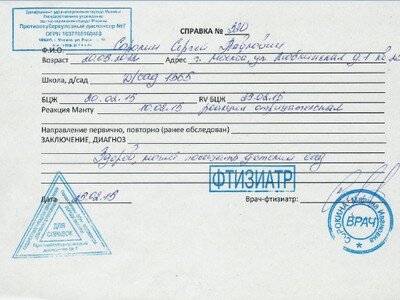 Департамент здравоохранения города Москвы
Государственное учреждение
здравоохранения города Москвы
Противотуберкулезный диспансер №7
СПРАВКА № 330
Ф.И.О. Сорокин Сергей Павлович
Возраст Адрес: г. Москва, ул. Люблинская д.1
Школа, д/сад д/сад 1565
БЦЖ 20.02.15 RV БЦЖ
Реакция Манту 10.02.15 реакция отрицательная
Направление первично, повторно (ранее обследован)
ЗАКЛЮЧЕНИЕ, ДИАГНОЗ
Здоров, может посещать детский сад
ФТИЗИАТР
Дата 25.02.15 Врач-фтизиатр:
ДЛЯ
СПРАВОК
СОРОКИНА Марина Ивановна
ВРАЧ